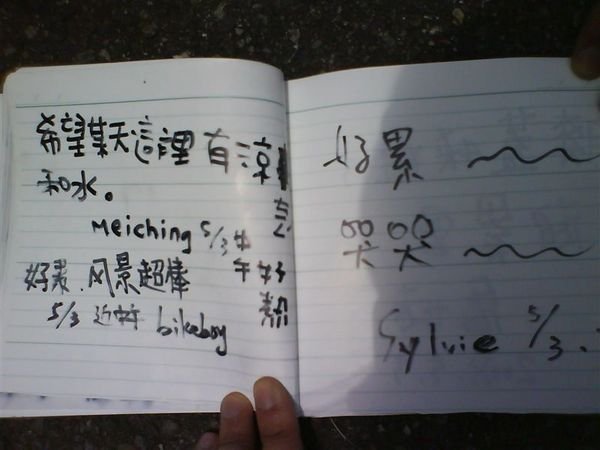 希望某天這裡有涼
和水。
Meiching 5/3
好累.风景超棒
5/3 bikeboy
好累～
哭哭～
Sylvie 5/3.